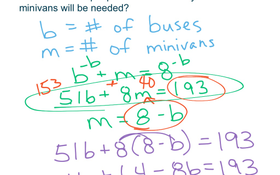 minivans will be needed?
b = # of buses
m = # of minivans
-b -b
b + m = 8
153 40
51b + 8m = 193
m = 8 - b
51b + 8(8-b) = 193